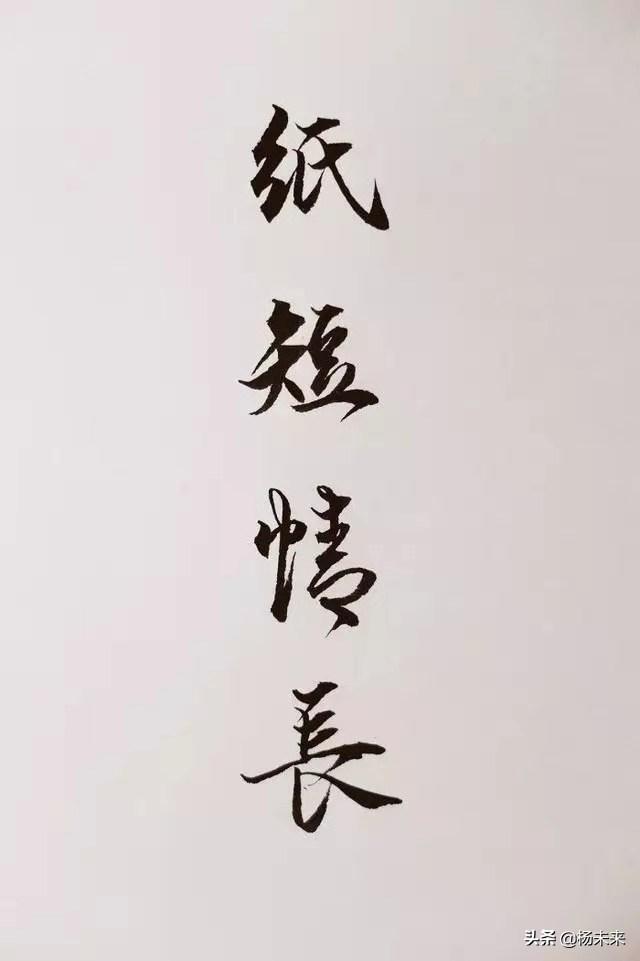 紙短情長
头条 @杨未来